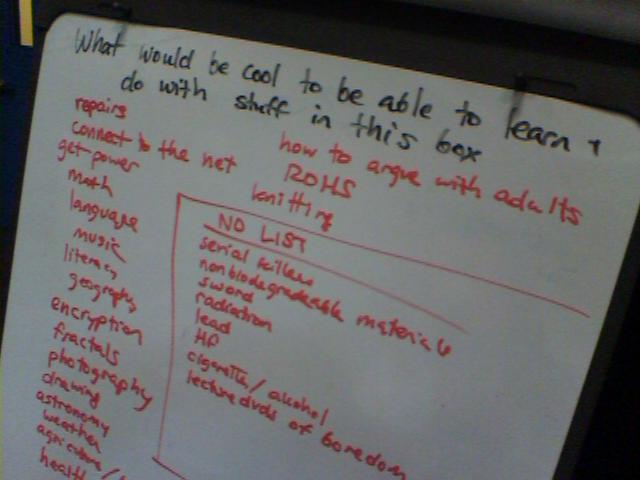 What would be cool to be able to learn +
do with stuff in this box
repairs
connect to the net
get power
math
language
music
literacy
geography
encryption
fractals
photography
drawing
astronomy
weather
agriculture/
health
how to argue with adults
ROHS
knitting
NO LIST
serial killers
nonbiodegradeable materials
sword
radiation
lead
HP
cigarettes/alcohol
lecture dvds of boredom